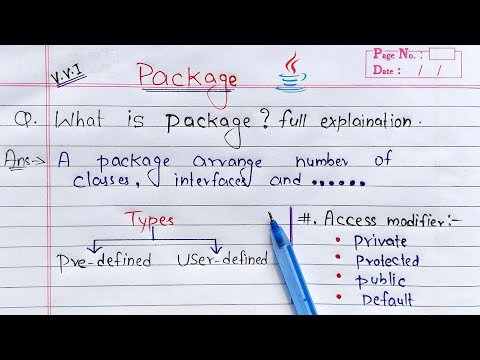 Page No.:
Date : / /
V.V.I
Package
Q. What is package? full explaination.
Ans:-> A package arrange number of
classes, interfaces and ......
Types
Pre-defined User-defined
#. Access modifier:-
• private
• protected
• public
• Default